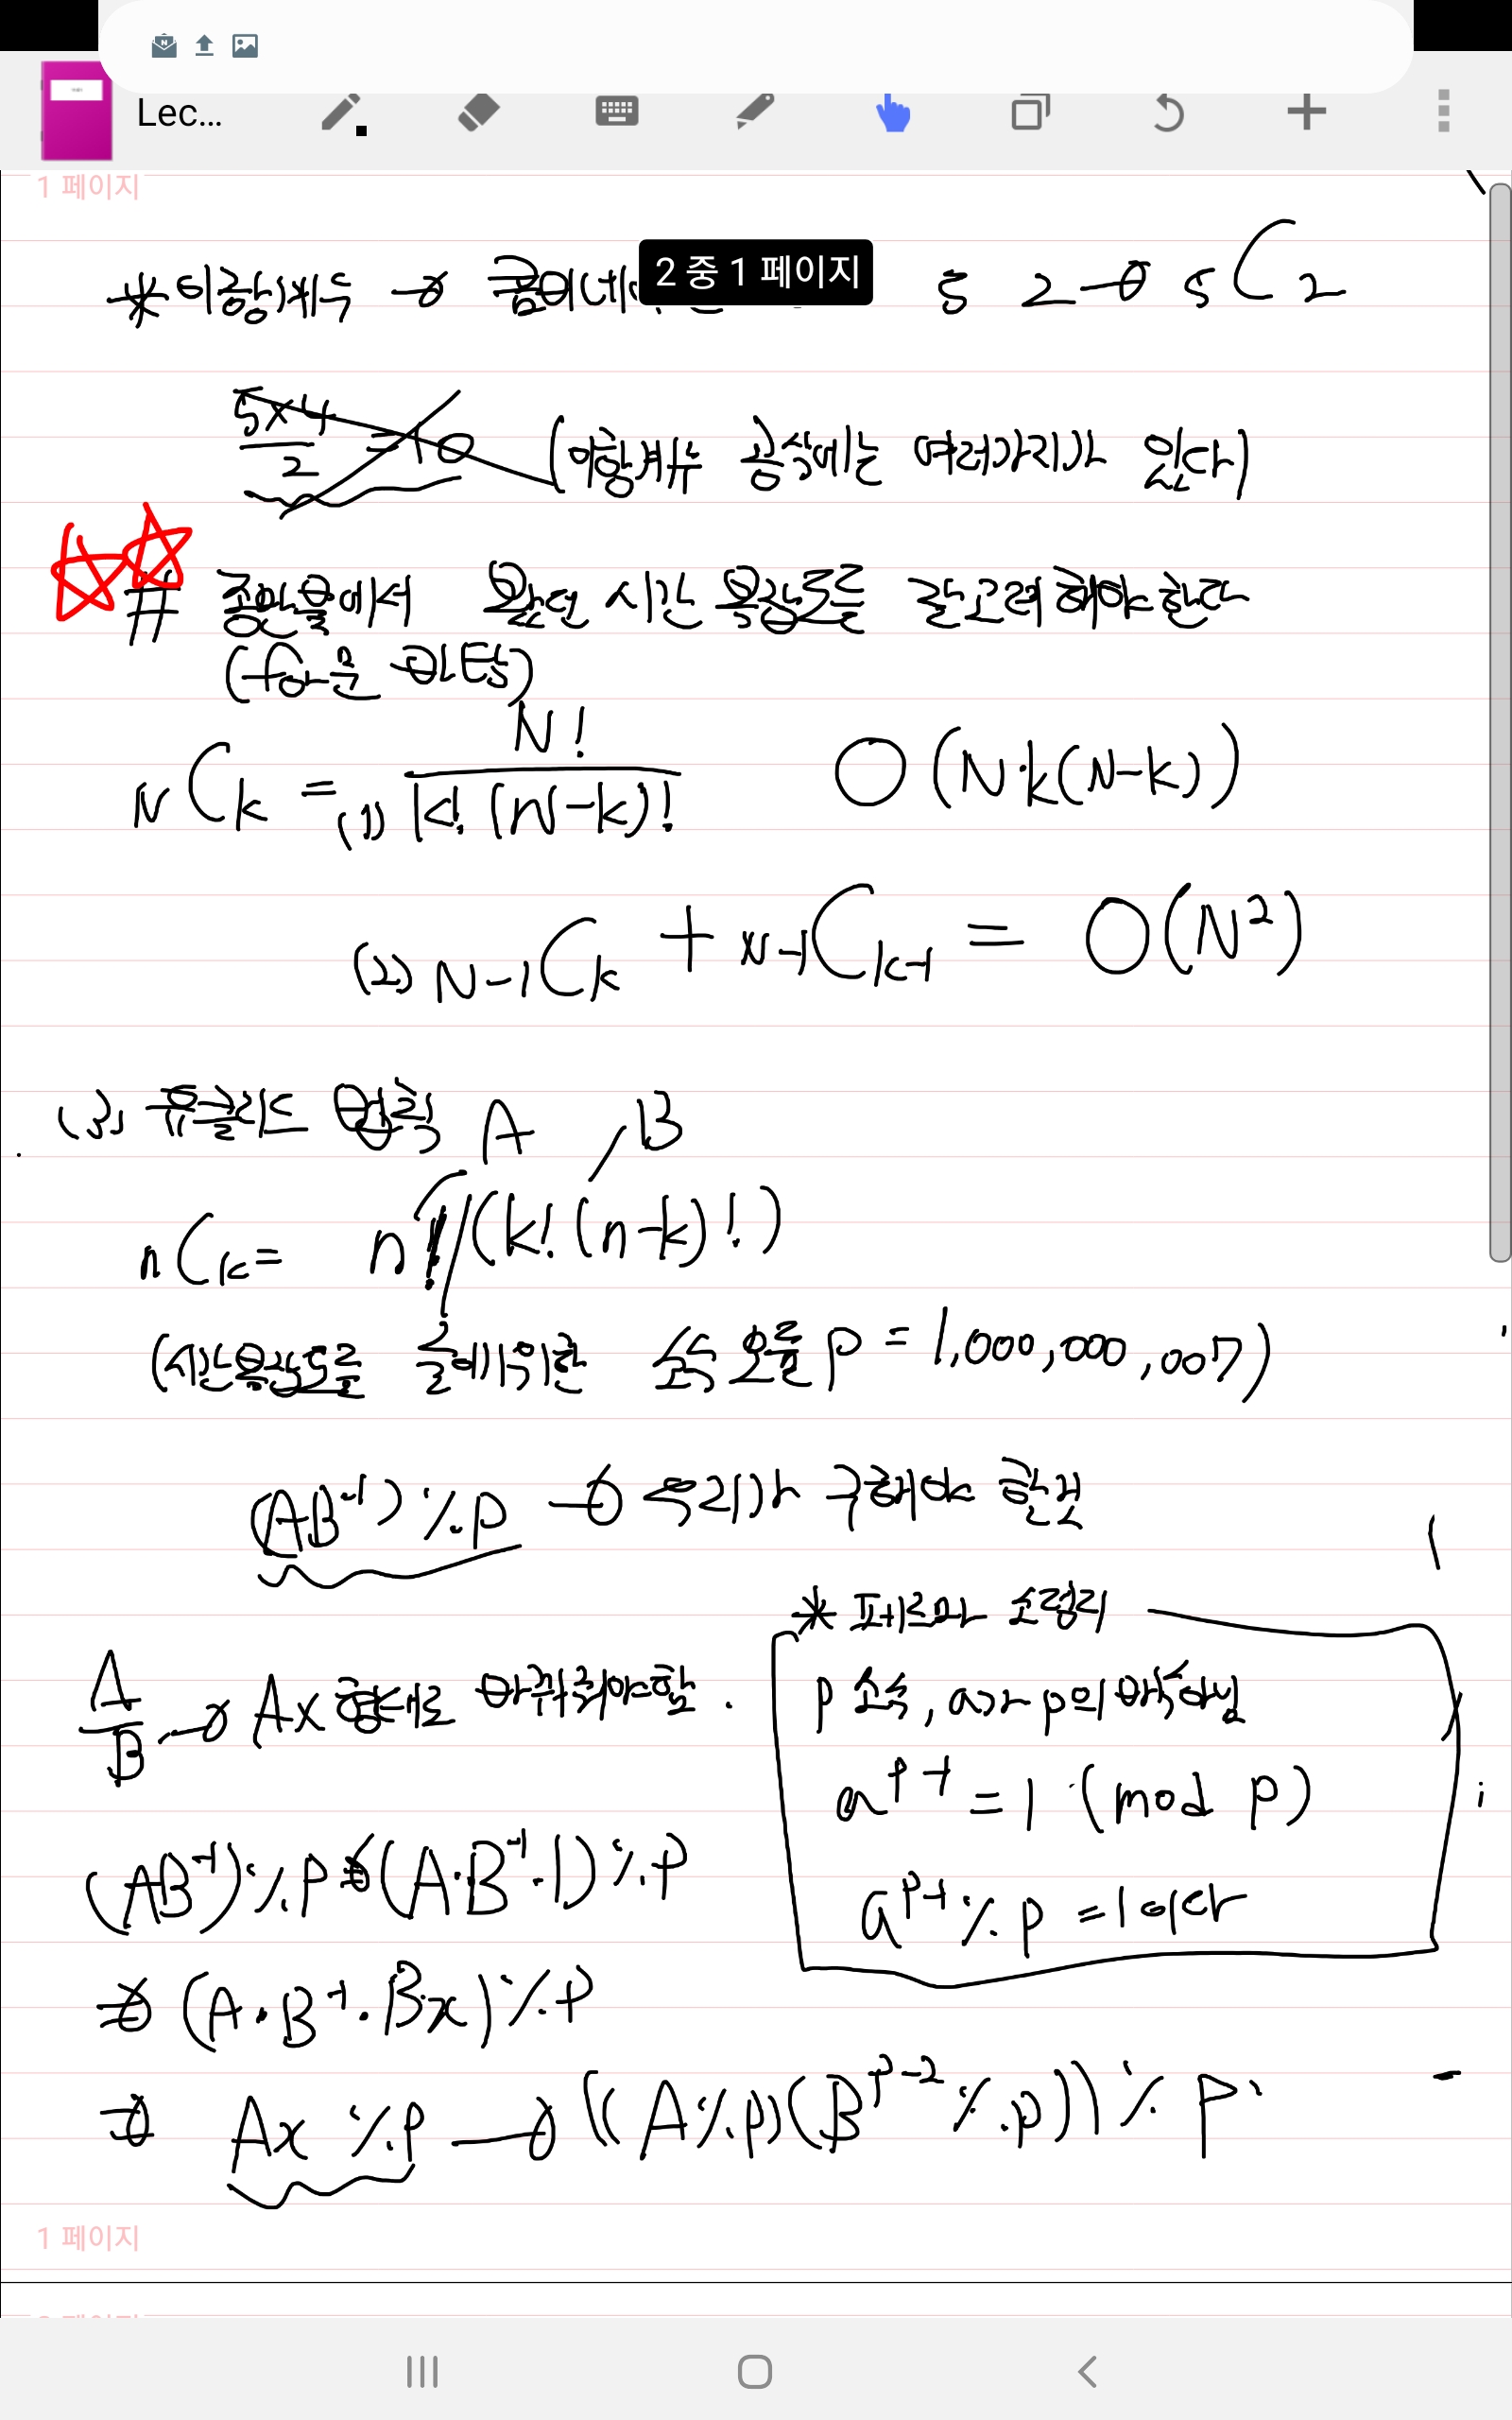 Lec...
1 페이지
2 중 1 페이지
* 이항계수 → 중 2 → 5C2
5×4/2 = 10 (이항계수 공식에는 여러가지가 있다)
# 조합론에서 시간 복잡도를 잘 고려해야 한다
NCk = (1) N! / k!(N-k)! O(N·k(N-k))
(2) N-1Ck + N-1Ck-1 = O(N²)
(3) A, B
nCk = n!/(k!(n-k)!)
(시간복잡도를 줄이기위한 소수 p = 1,000,000,007)
(AB^-1) % p → 우리가 구해야 할
* 페르마 소정리
A/B → Ax 형태로 바꿔줘야함.
p 소수, a가 p의 배수 아님
a^p-1 = 1 (mod p)
(AB^-1) % P (A·B^-1·1) % P
a^p-1 % p = 1
⇒ (A·B^-1·Bx) % P
⇒ Ax % P → ((A%p)(B^p-2 % p)) % P
1 페이지